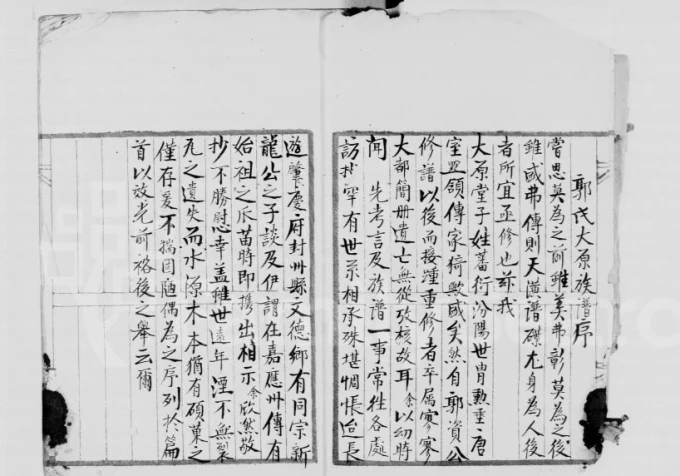 郭氏大原族譜序
嘗思莫為之前雖美弗彰莫為之後
雖盛弗傳則天潢譜牒尤身為人後
者所宜亟修也茲我
大原堂子姓蕃衍汾陽世胄勲垂唐
室頷傳家猗歟盛矣然自郭資公
修譜以後而接踵重修者卒屬寥寥
大都簡冊遺亡無從攷核故耳余以幼時
聞 先考言及族譜一事常徃各處
訪抄罕有世系相承殊堪惆悵迨長
遊肇慶府封州縣文德鄉有同宗新
龍公之子談及伊謂在嘉應州傳有
始祖之瓜苗時即携出相示余欣然敬
抄不勝慰幸盖雖世遠年湮不無
之遺失而水源木本猶有碩菓之
僅存爰不揣固陋偶為之序列於篇
首以光前裕後之舉云爾